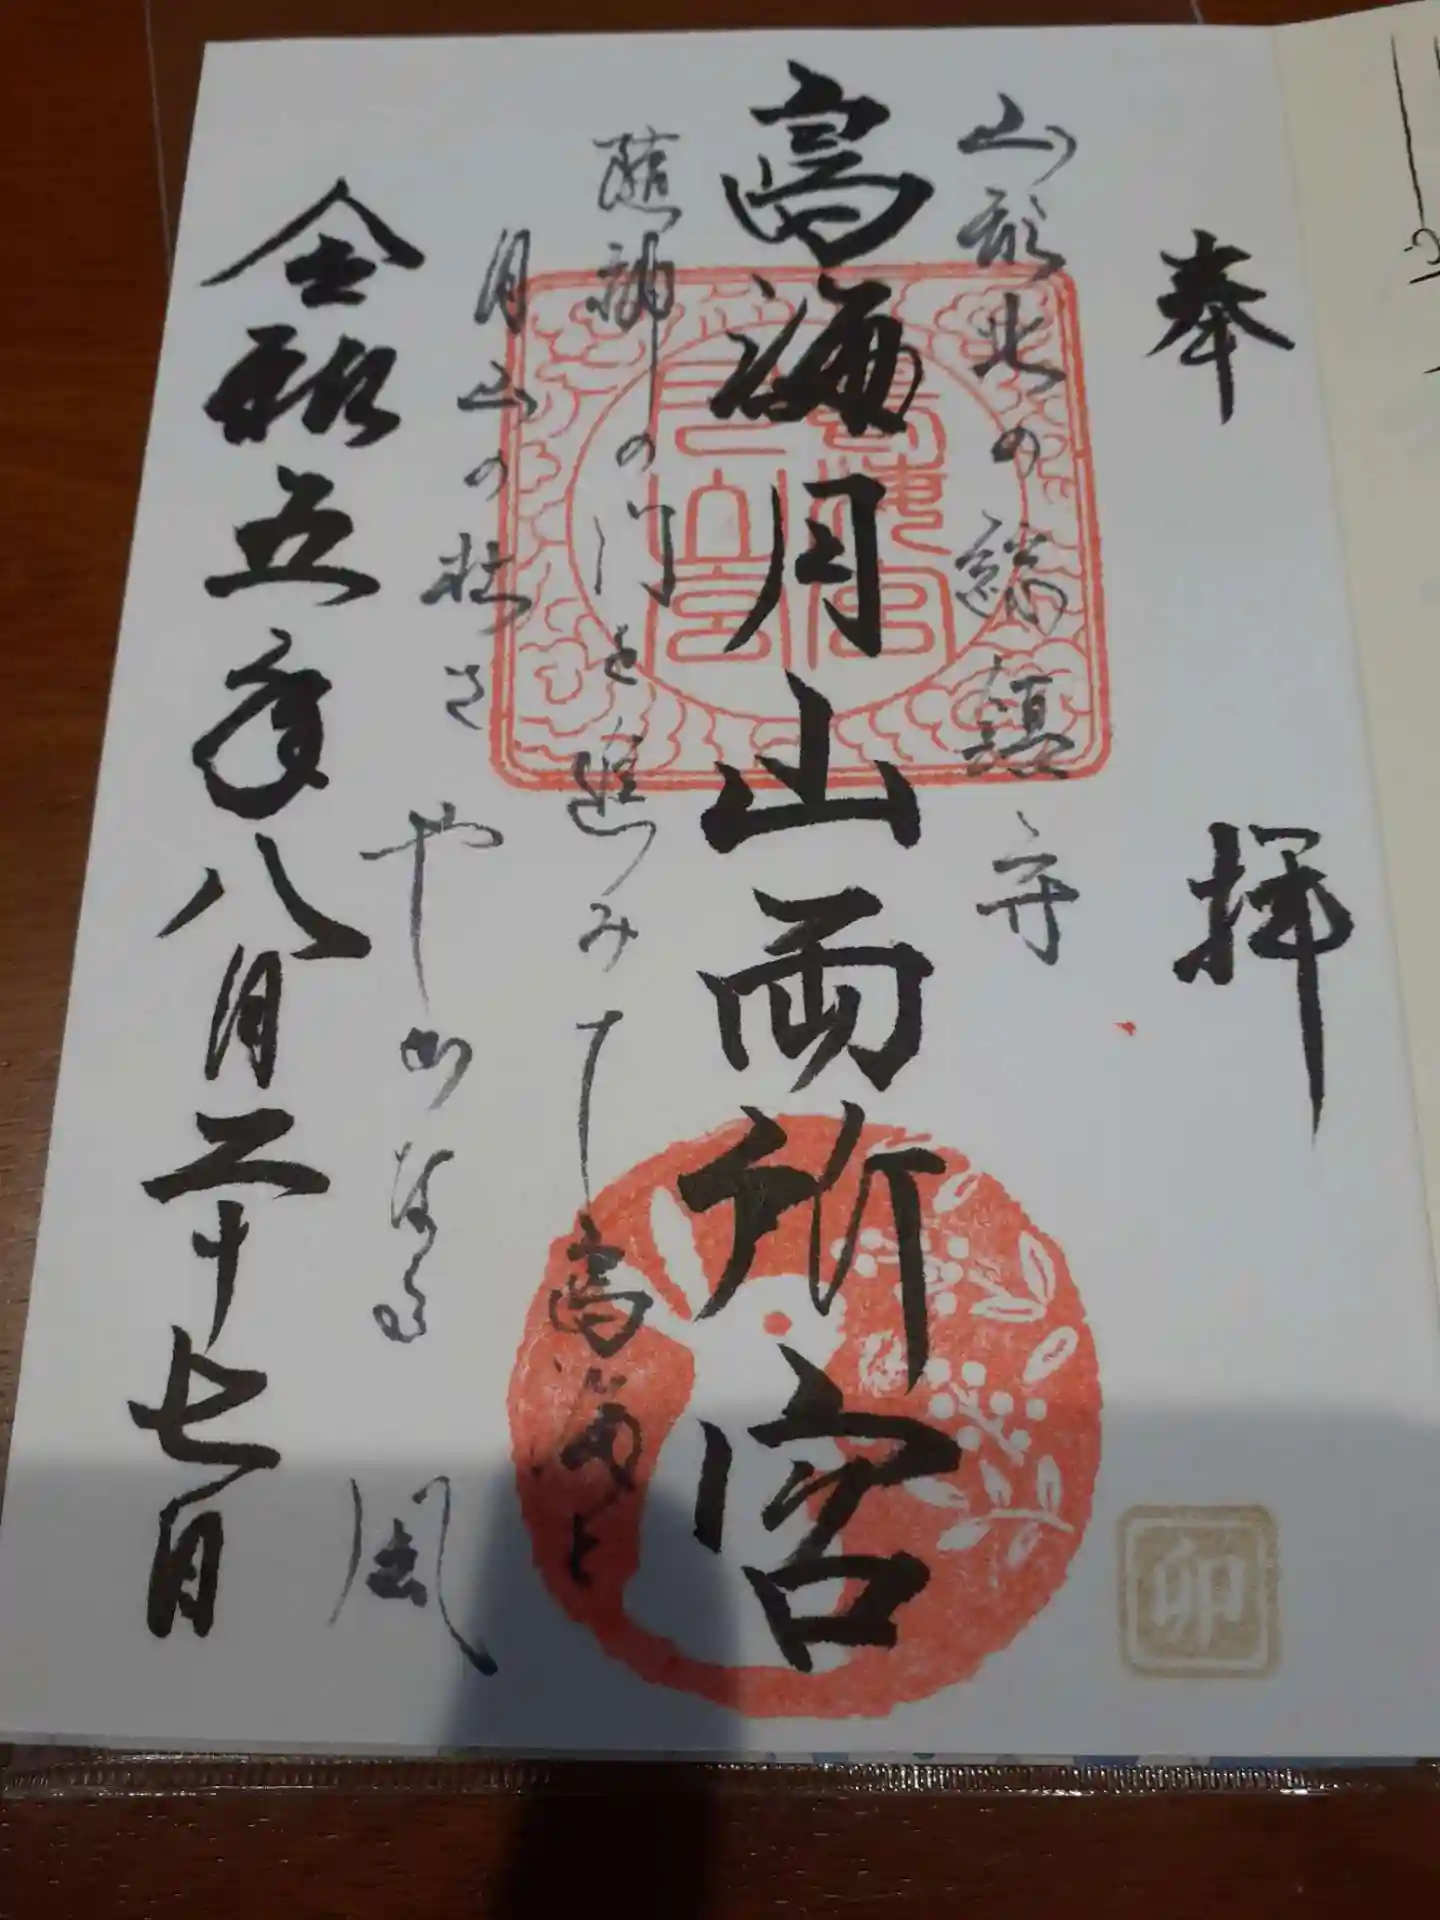 奉拝
山形北の総鎮守
鳥海月山両所宮
随神の門を進みて鳥海と
月山の杜さやかなる風
令和五年八月二十七日
鳥海宮
月山宮
卯